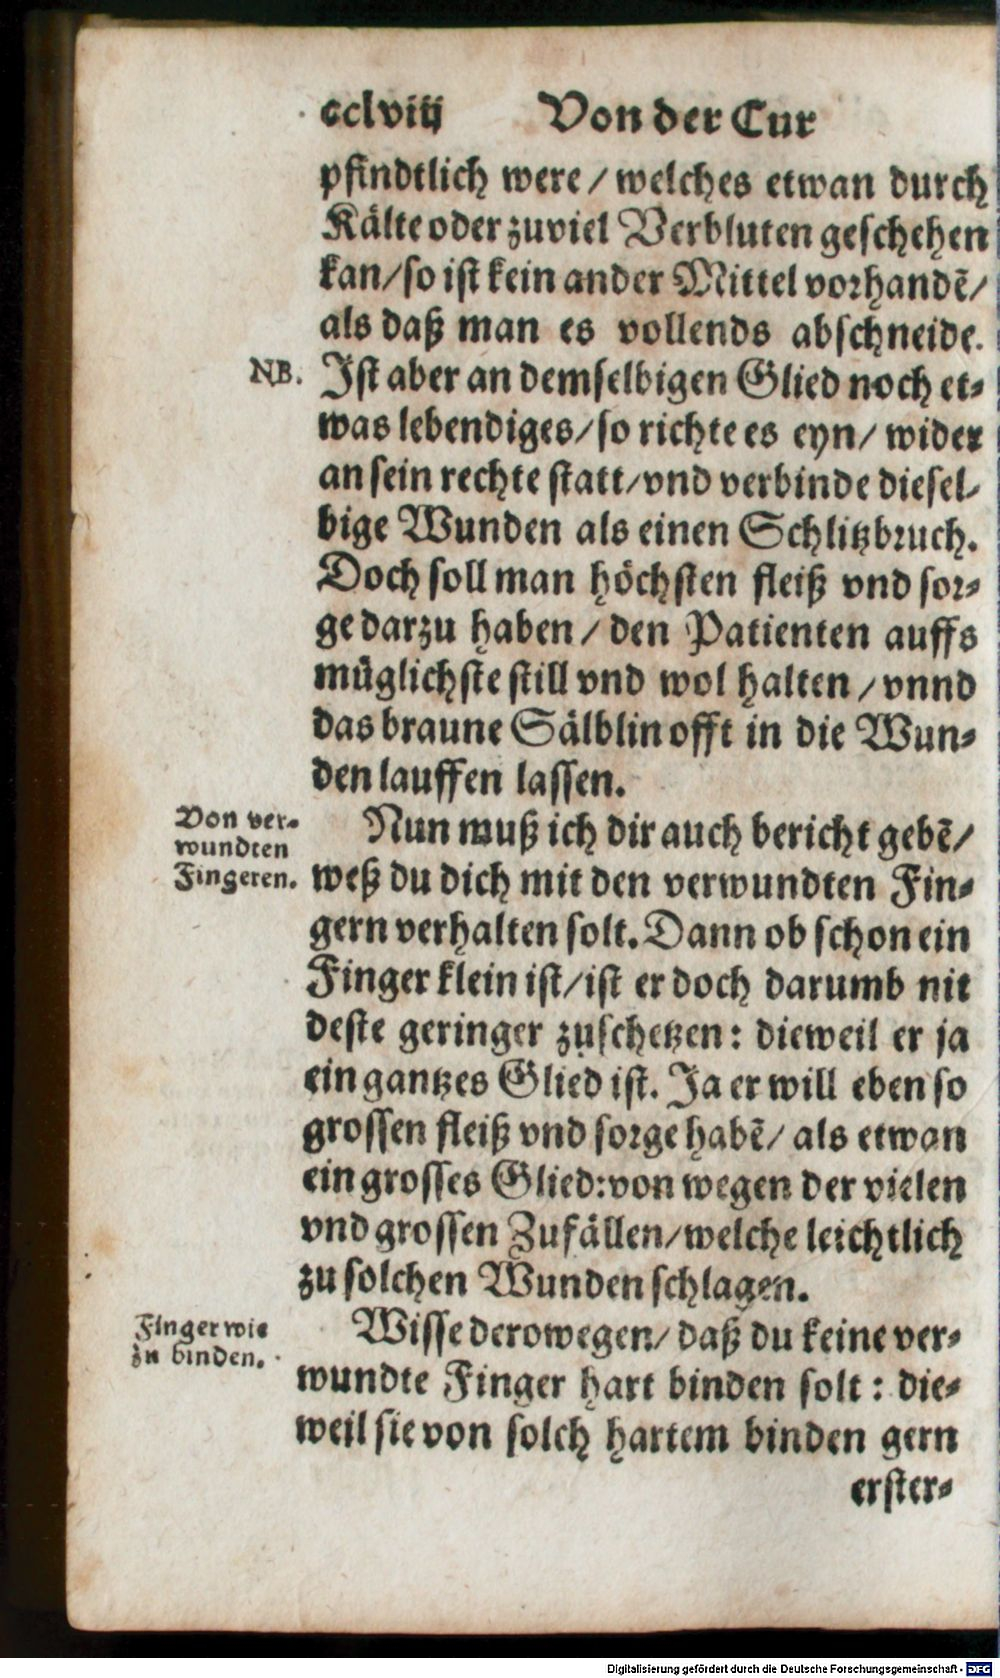 cclviij Von der Cur
pfindtlich were / welches etwan durch
Kälte oder zuviel Verbluten geschehen
kan/so ist kein ander Mittel vorhandẽ/
als daß man es vollends abschneide.
NB. Ist aber an demselbigen Glied noch et-
was lebendiges/so richte es eyn/ wider
an sein rechte statt/vnd verbinde diesel-
bige Wunden als einen Schlitzbruch.
Doch soll man höchsten fleiß vnd sor-
ge darzu haben / den Patienten auffs
müglichste still vnd wol halten / vnnd
das braune Sälblin offt in die Wun-
den lauffen lassen.
Von ver-
wundten
Fingeren.
Nun muß ich dir auch bericht gebẽ/
weß du dich mit den verwundten Fin-
gern verhalten solt. Dann ob schon ein
Finger klein ist/ist er doch darumb nit
deste geringer zuschetzen: dieweil er ja
ein gantzes Glied ist. Ja er will eben so
grossen fleiß vnd sorge habẽ/ als etwan
ein grosses Glied: von wegen der vielen
vnd grossen Zufällen/welche leichtlich
zu solchen Wunden schlagen.
Finger wie
zu binden.
Wisse derowegen/ daß du keine ver-
wundte Finger hart binden solt : die-
weil sie von solch hartem binden gern
erster-
Digitalisierung gefördert durch die Deutsche Forschungsgemeinschaft - DFG